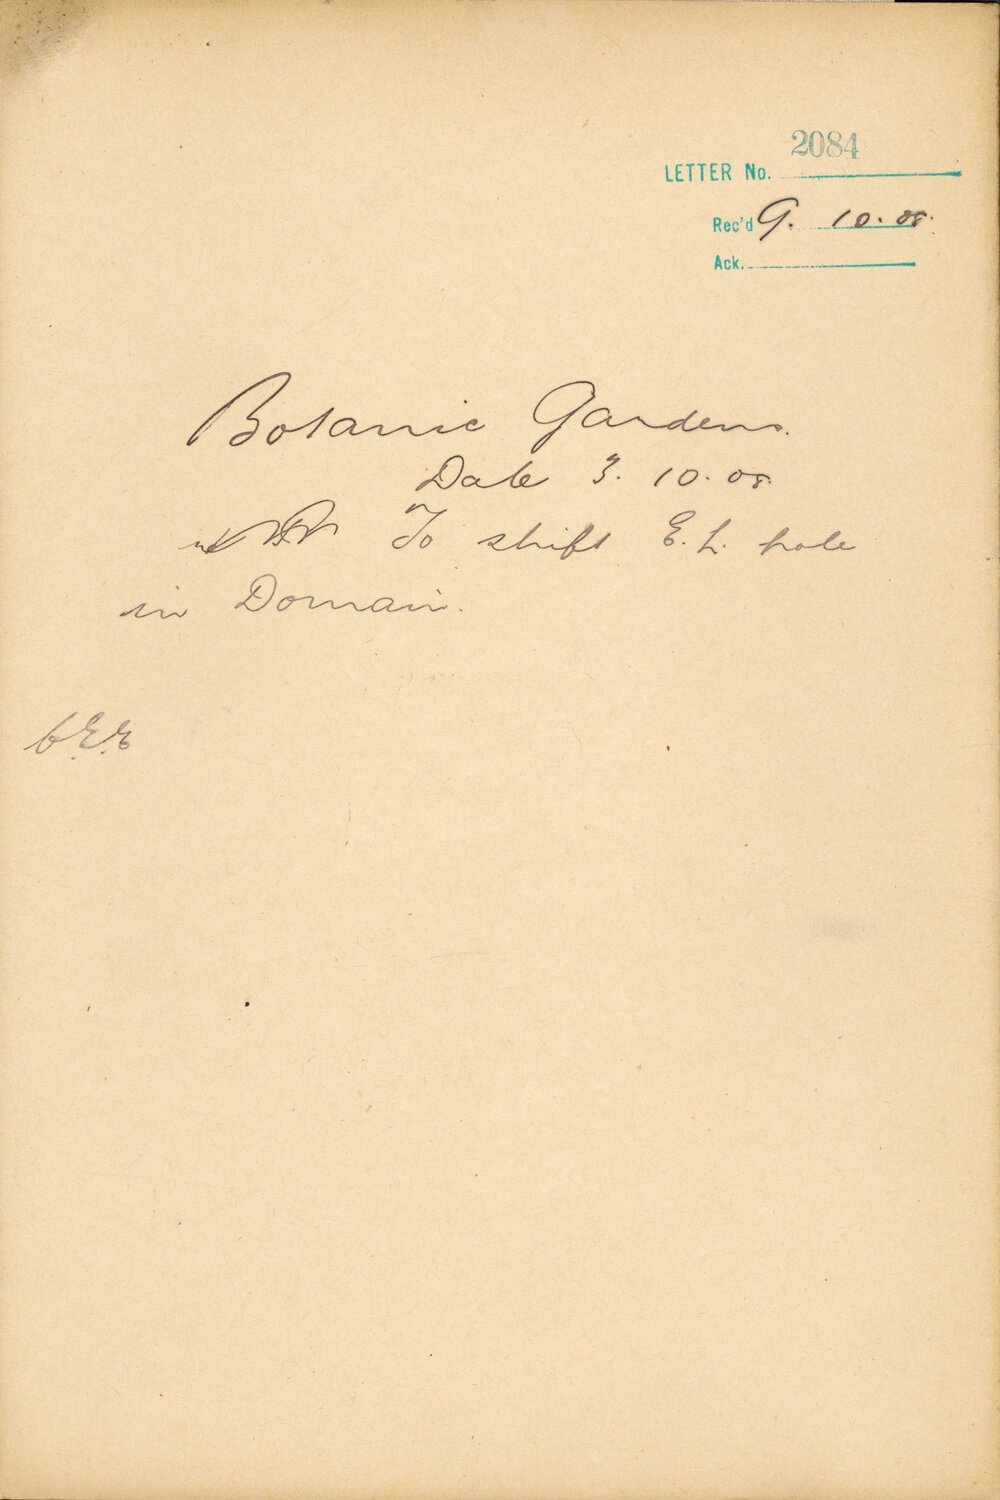 2084
LETTER No.
Rec'd 9. 10. 08.
Ack.
Botanic Gardens.
Date 3. 10. 08
To shift E. L. pole
in Domain.
C.E.E